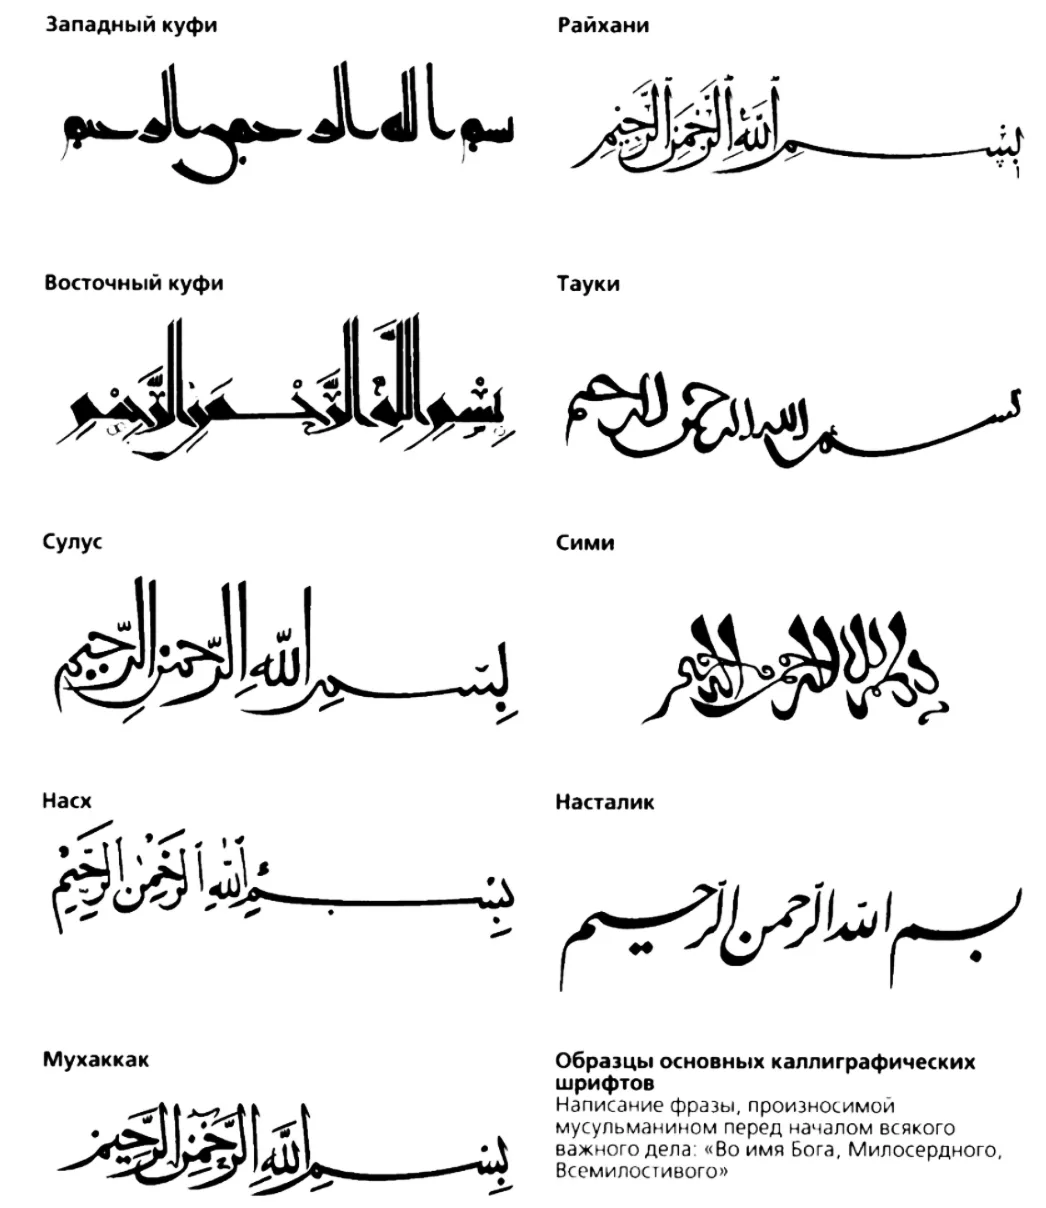 Западный куфи
بسم الله الرحمن الرحيم
Восточный куфи
بسم الله الرحمن الرحيم
Сулус
بسم الله الرحمن الرحيم
Насх
بسم الله الرحمن الرحيم
Мухаккак
بسم الله الرحمن الرحيم
Райхани
بسم الله الرحمن الرحيم
Тауки
بسم الله الرحمن الرحيم
Сими
بسم الله الرحمن الرحيم
Насталик
بسم الله الرحمن الرحيم
Образцы основных каллиграфических
шрифтов
Написание фразы, произносимой
мусульманином перед началом всякого
важного дела: «Во имя Бога, Милосердного,
Всемилостивого»